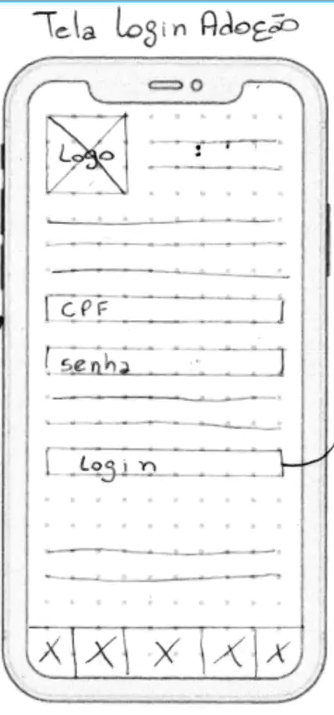 Tela Login Adoção
Logo
CPF
senha
Login
X X X X X